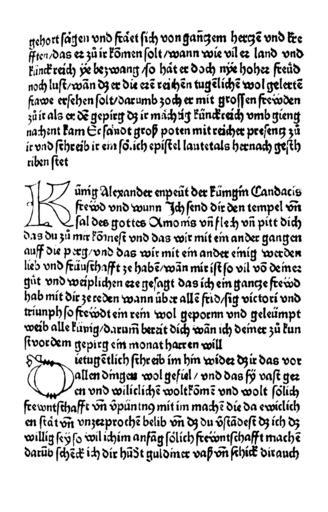 gehort sagen und fraet sich von gantzem hertzen und kre
fften/das er zů ir kömen solt/wann wie vil er land und
künckreich ye bezwang/so hat er doch nye hoher freüd
noch lust/wañ dz er die erē reichen tugētlichē wol gelertē
frawe ersehen solt/darumb zoch er mit grossen frewden
zů ir als er dē gepirg dz ir mächtig künckreich vmb gieng
nachent kam Er sandt groß poten mit reicher presentz zů
ir vnd schreib ir ein solich epistel lautet als hernach gesch
riben stet
Künig Alexander enpeüt der künigin Candacis
freẅd vnd wunn Jch send dir den tempel vñ
sal des gottes Amonis vñ flech vñ pitt dich
das du zů mir kömest vnd das wir mit ein ander gangen
auff die perg/vnd das wir mit ein ander einig werden
lieb vnd freüntschafft ze habē/wañ mir ist so vil võ deiner
güt vnd weiplichen ere gesagt das ich ein gantze freẅd
hab mit dir ze reden wann über allē frid/sig victori vnd
triumph so freẅdt ein rein wol geporen vnd geleümpt
weib alle künig/darum̃ bereit dich wañ ich deiner zů kun
fft vor dem gepirg ein monat harren will
Die tugētlich schreib im hin wider dz ir das vor
allen dingen wol gefiel/vnd das sy vast ger
en vnd williclichen wolt kömen vnd wolt sölich
frewntschafft vñ vpüntnüß mit im machē die da ewiclich
en stāt vñ vnzerprochē belib vñ dz du vstādest dz ich dz
willig sey so wil ich im anfāg sölich freẅntschafft machē
darüb schenck ich dir hūdt guldiner vaß vñ schick dir auch